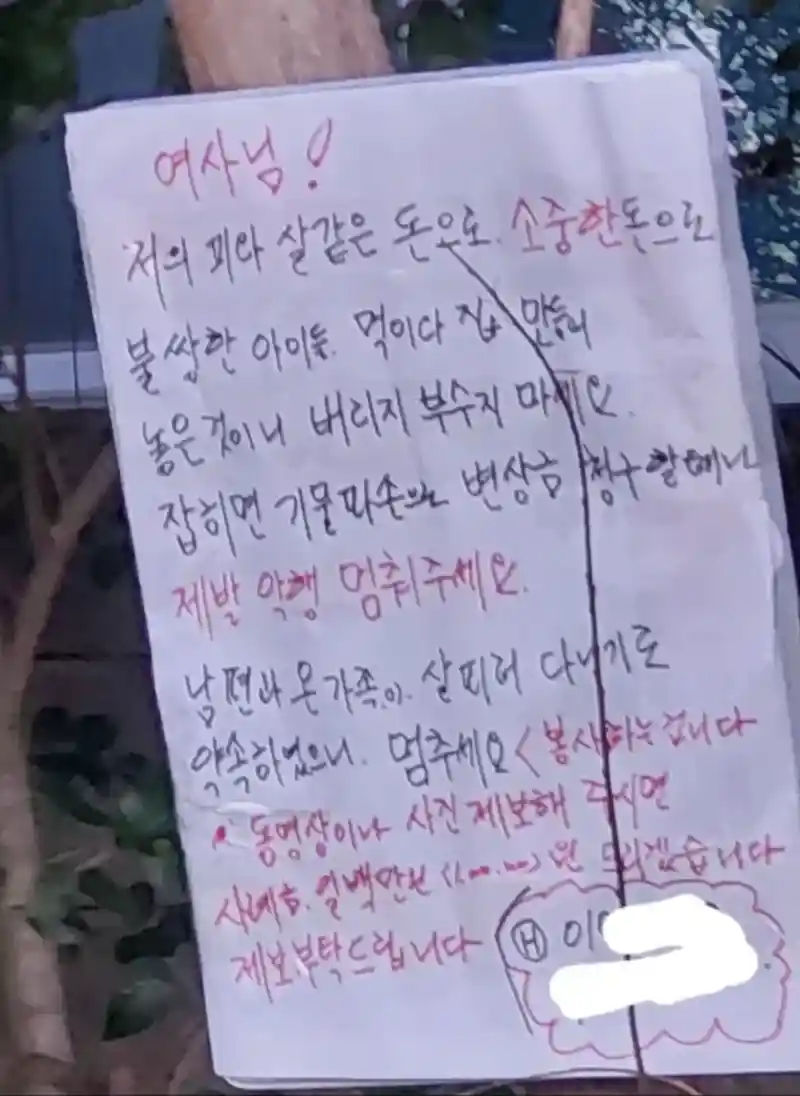 여사님!
저의 피와 살같은 돈으로. 소중한돈으로
불쌍한 아이들. 먹이다 집 만들어
놓은것이니 버리지 부수지 마세요.
잡히면 기물파손으로 변상금 청구할테니
제발 악행 멈춰주세요.
남편과 온가족이. 살피러 다니기로
약속하였으니. 멈추세요< 봉사하는겁니다
동영상이나 사진제보해 주시면
사례금. 일백만원 원 드리겠습니다
제보부탁드립니다
H